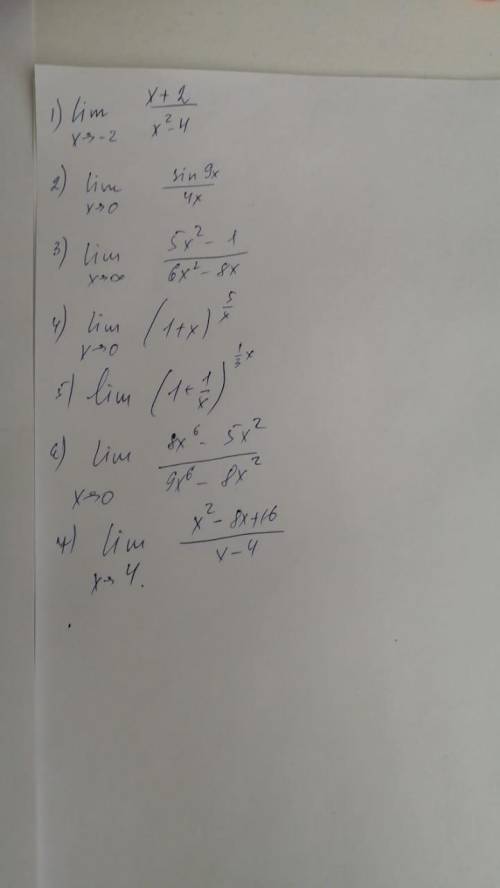 1) lim x→-2 (x+2)/(x²-4)
2) lim x→0 sin 9x/4x
3) lim x→∞ (5x²-1)/(6x²-8x)
4) lim x→0 (1+x)^(5/x)
5) lim (1+1/x)^(1/3 x)
6) lim x→0 (8x⁶-5x²)/(9x⁶-8x²)
7) lim x→4. (x²-8x+16)/(x-4)